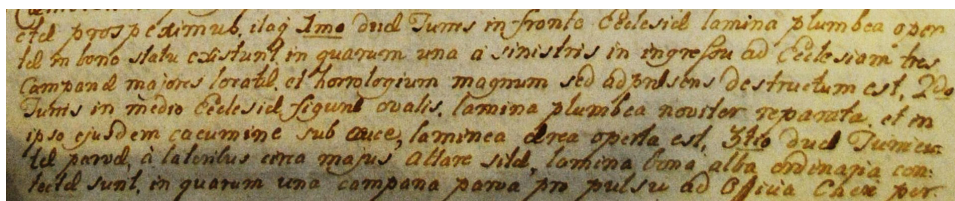 ctæ prospeximus, itaq 1mo duæ Turres in fronte Ecclesiæ lamina plumbea oper
tæ in bono statu existunt, in quarum una a sinistris in ingressu ad Ecclesiam tres
Campanæ majores locatæ, et horrologium magnum sed ad præsens destructum est, 2do
Turris in medio Ecclesiæ figuræ ovalis, lamina plumbea noviter reparata, et in
ipso ejusdem cacumine sub cruce, laminea ærea operta est, 3tio duæ Turricu:
læ parvæ, à lateribus circa majus Altare sitæ, lamina bona alba ordinaria con:
tectæ sunt, in quarum una campana parva pro pulsu ad Officia Chori per